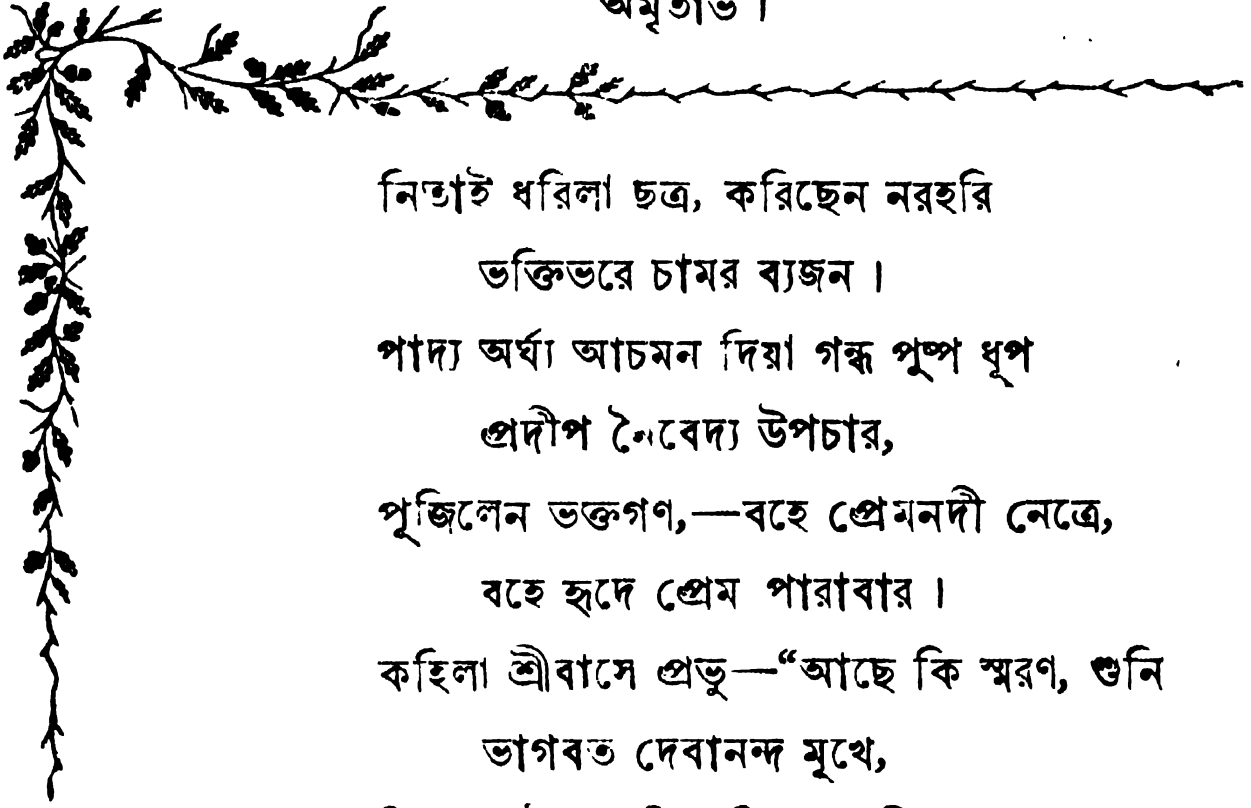 অমৃতাভ ।
নিতাই ধরিলা ছত্র, করিছেন নরহরি
ভক্তিভরে চামর ব্যজন ।
পাদ্য অর্ঘ্য আচমন দিয়া গন্ধ পুষ্প ধূপ
প্রদীপ নৈবেদ্য উপচার,
পূজিলেন ভক্তগণ,—বহে প্রেমনদী নেত্রে,
বহে হৃদে প্রেম পারাবার ।
কহিলা শ্রীবাসে প্রভু—“আছে কি স্মরণ, শুনি
ভাগবত দেবানন্দ মুখে,